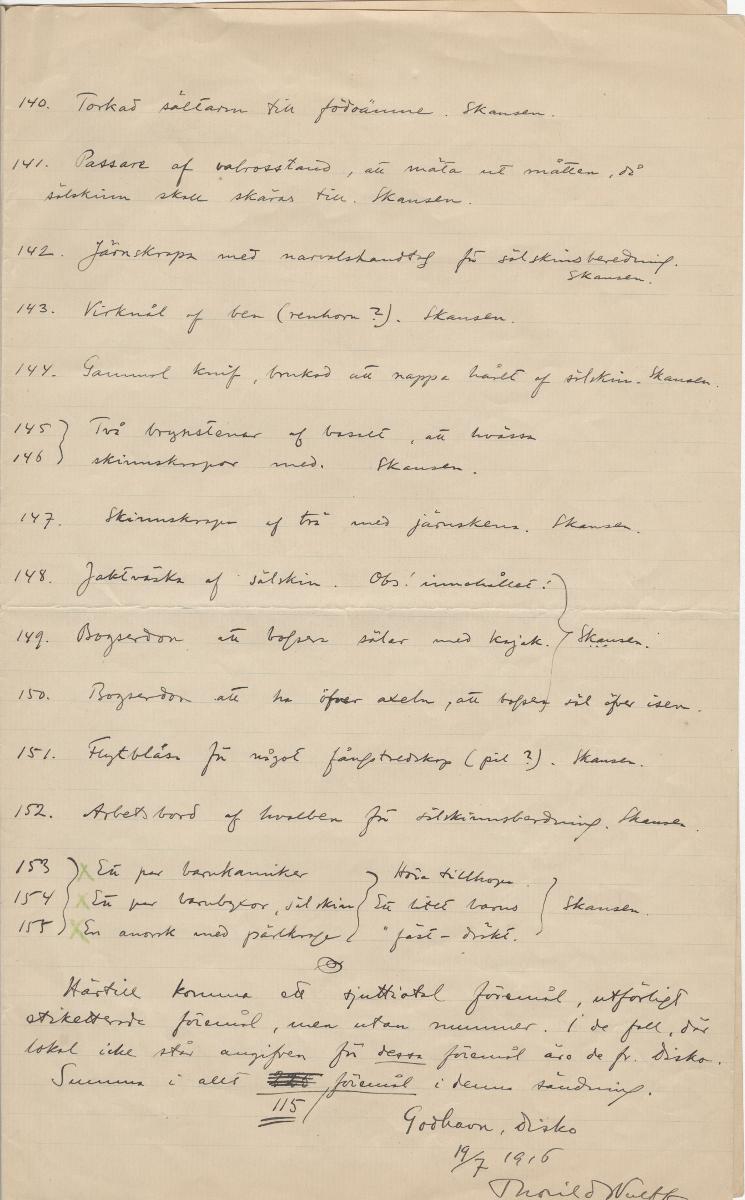 140. Torkad sältarm till födoämne. Skansen.
141. Passare af valrosstand, att mäta ut måtten, då
sälskinn skall skäras till. Skansen.
142. Järnskrapa med narvalshandtag för sälskinsberedning.
Skansen.
143. Virknål af ben (renhorn?). Skansen.
144. Gammal knif, brukad att nappa håret af sälskin. Skansen.
145 } Två brynstenar af basalt, att hvässa
146 } skinnskrapor med. Skansen.
147. Skinnskrapa af trä med järnskena. Skansen.
148. Jaktväska af sälskin. Obs! innehållet!
149. Bogserdon att bogsera sälar med kajak. } Skansen.
150. Bogserdon att ha öfver axeln, att bogsera säl öfver isen.
151. Flytblåsa för något fångstredskap (pil?). Skansen.
152. Arbetsbord af hvalben för sälskinnsberedning. Skansen.
153 } x Ett par barnkamiker } Höra tillhopa.
154 } x Ett par barnbyxor, sälskin } Ett litet barns } Skansen.
155 } x En anorak med pärlkrage } fäst-dräkt.
Härtill komma ett sjuttiotal föremål, utförligt
etiketterade föremål, men utan nummer. I de fall, där
lokal icke står angifven för dessa föremål äro de fr. Disko.
Summa i allt föremål i denna sändning.
115
Godhavn, Disko
19/7 1916
Thorild Wulff